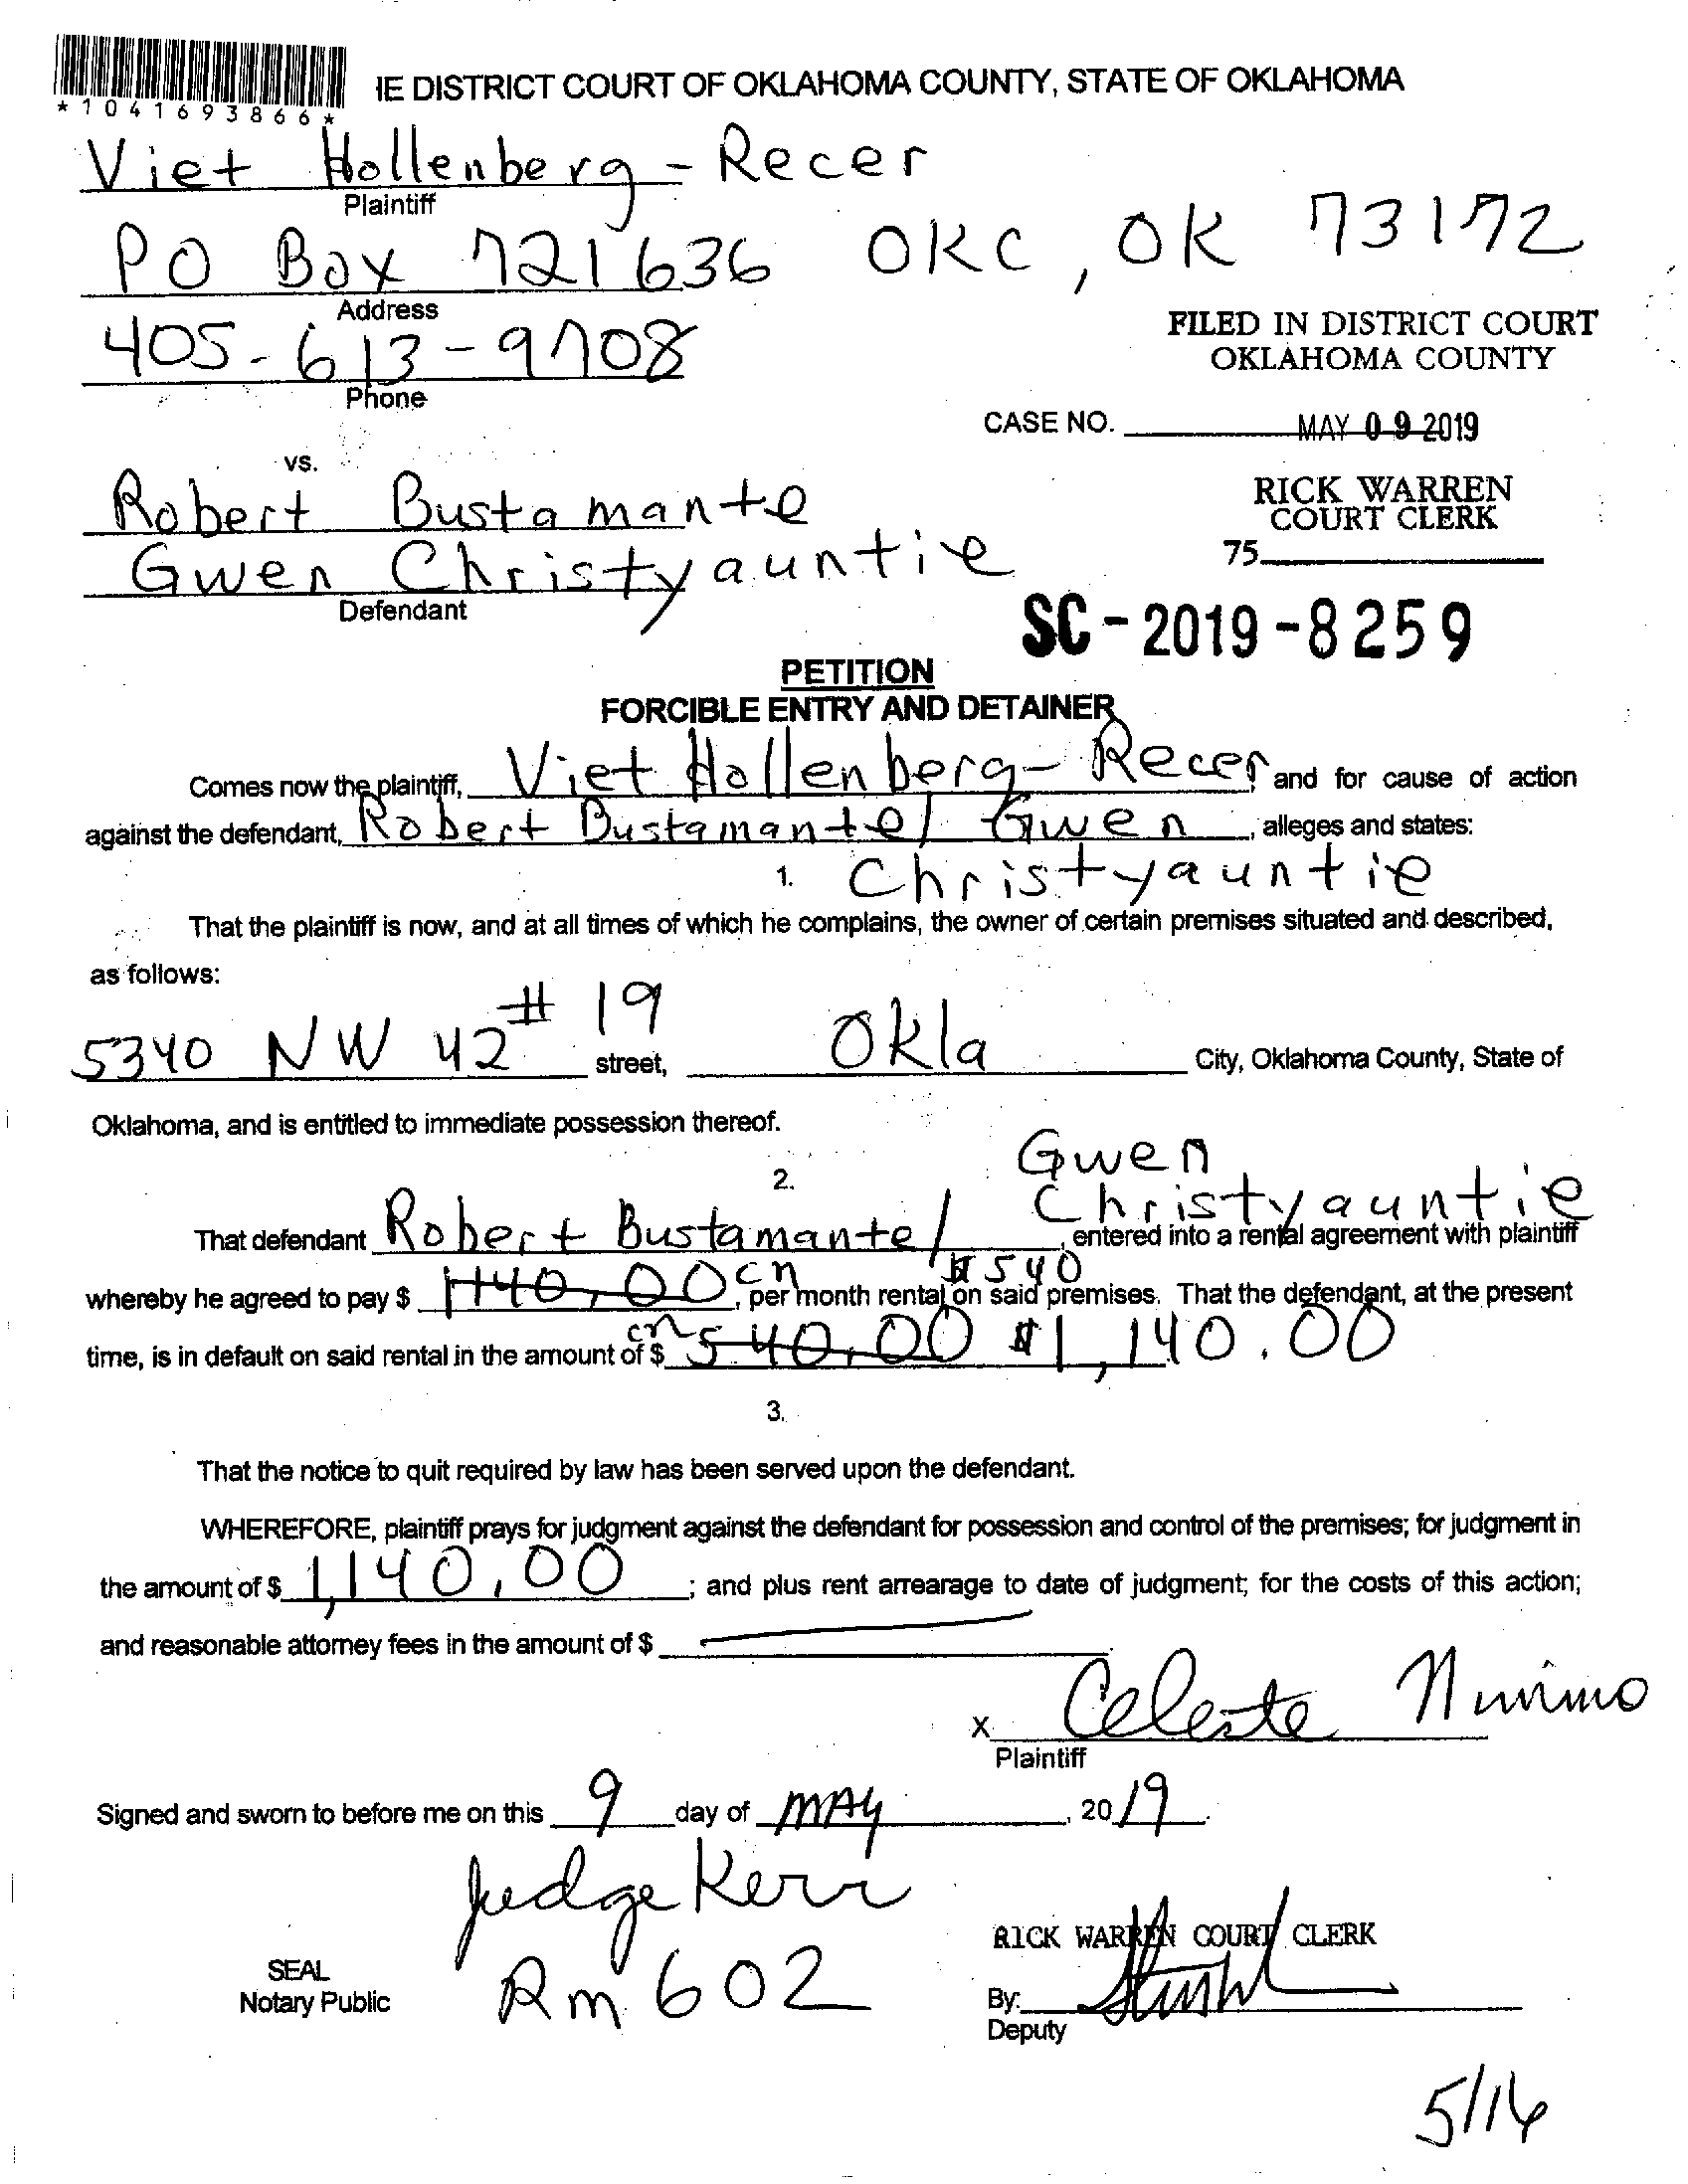 *1041693866*
IE DISTRICT COURT OF OKLAHOMA COUNTY, STATE OF OKLAHOMA
Viet Hollenberg-Recer
Plaintiff
PO Box 721636 OKC, OK 73172
Address
405-613-9708
Phone
FILED IN DISTRICT COURT
OKLAHOMA COUNTY
CASE NO. MAY 09 2019
vs.
Robert Bustamante
Gwen Christyauntie
Defendant
RICK WARREN
COURT CLERK
75
SC-2019-8259
PETITION
FORCIBLE ENTRY AND DETAINER
Comes now the plaintiff, Viet Hollenberg-Recer, and for cause of action
against the defendant, Robert Bustamante/ Gwen, alleges and states:
1. Christyauntie
That the plaintiff is now, and at all times of which he complains, the owner of certain premises situated and described,
as follows:
5340 NW 42 #19 street, Okla City, Oklahoma County, State of
Oklahoma, and is entitled to immediate possession thereof.
2.
Gwen
That defendant Robert Bustamante/ Christyauntie, entered into a rental agreement with plaintiff
whereby he agreed to pay $ 1140.00 cn $540, per month rental on said premises. That the defendant, at the present
time, is in default on said rental in the amount of $ cn 540.00 $1,140.00
3.
That the notice to quit required by law has been served upon the defendant.
WHEREFORE, plaintiff prays for judgment against the defendant for possession and control of the premises; for judgment in
the amount of $ 1,140.00; and plus rent arrearage to date of judgment; for the costs of this action;
and reasonable attorney fees in the amount of $
X Celeste
Plaintiff
Signed and sworn to before me on this 9 day of MAY, 2019.
Judge Kerr
Rm 602
SEAL
Notary Public
RICK WARREN COURT CLERK
By:
Deputy
5/16